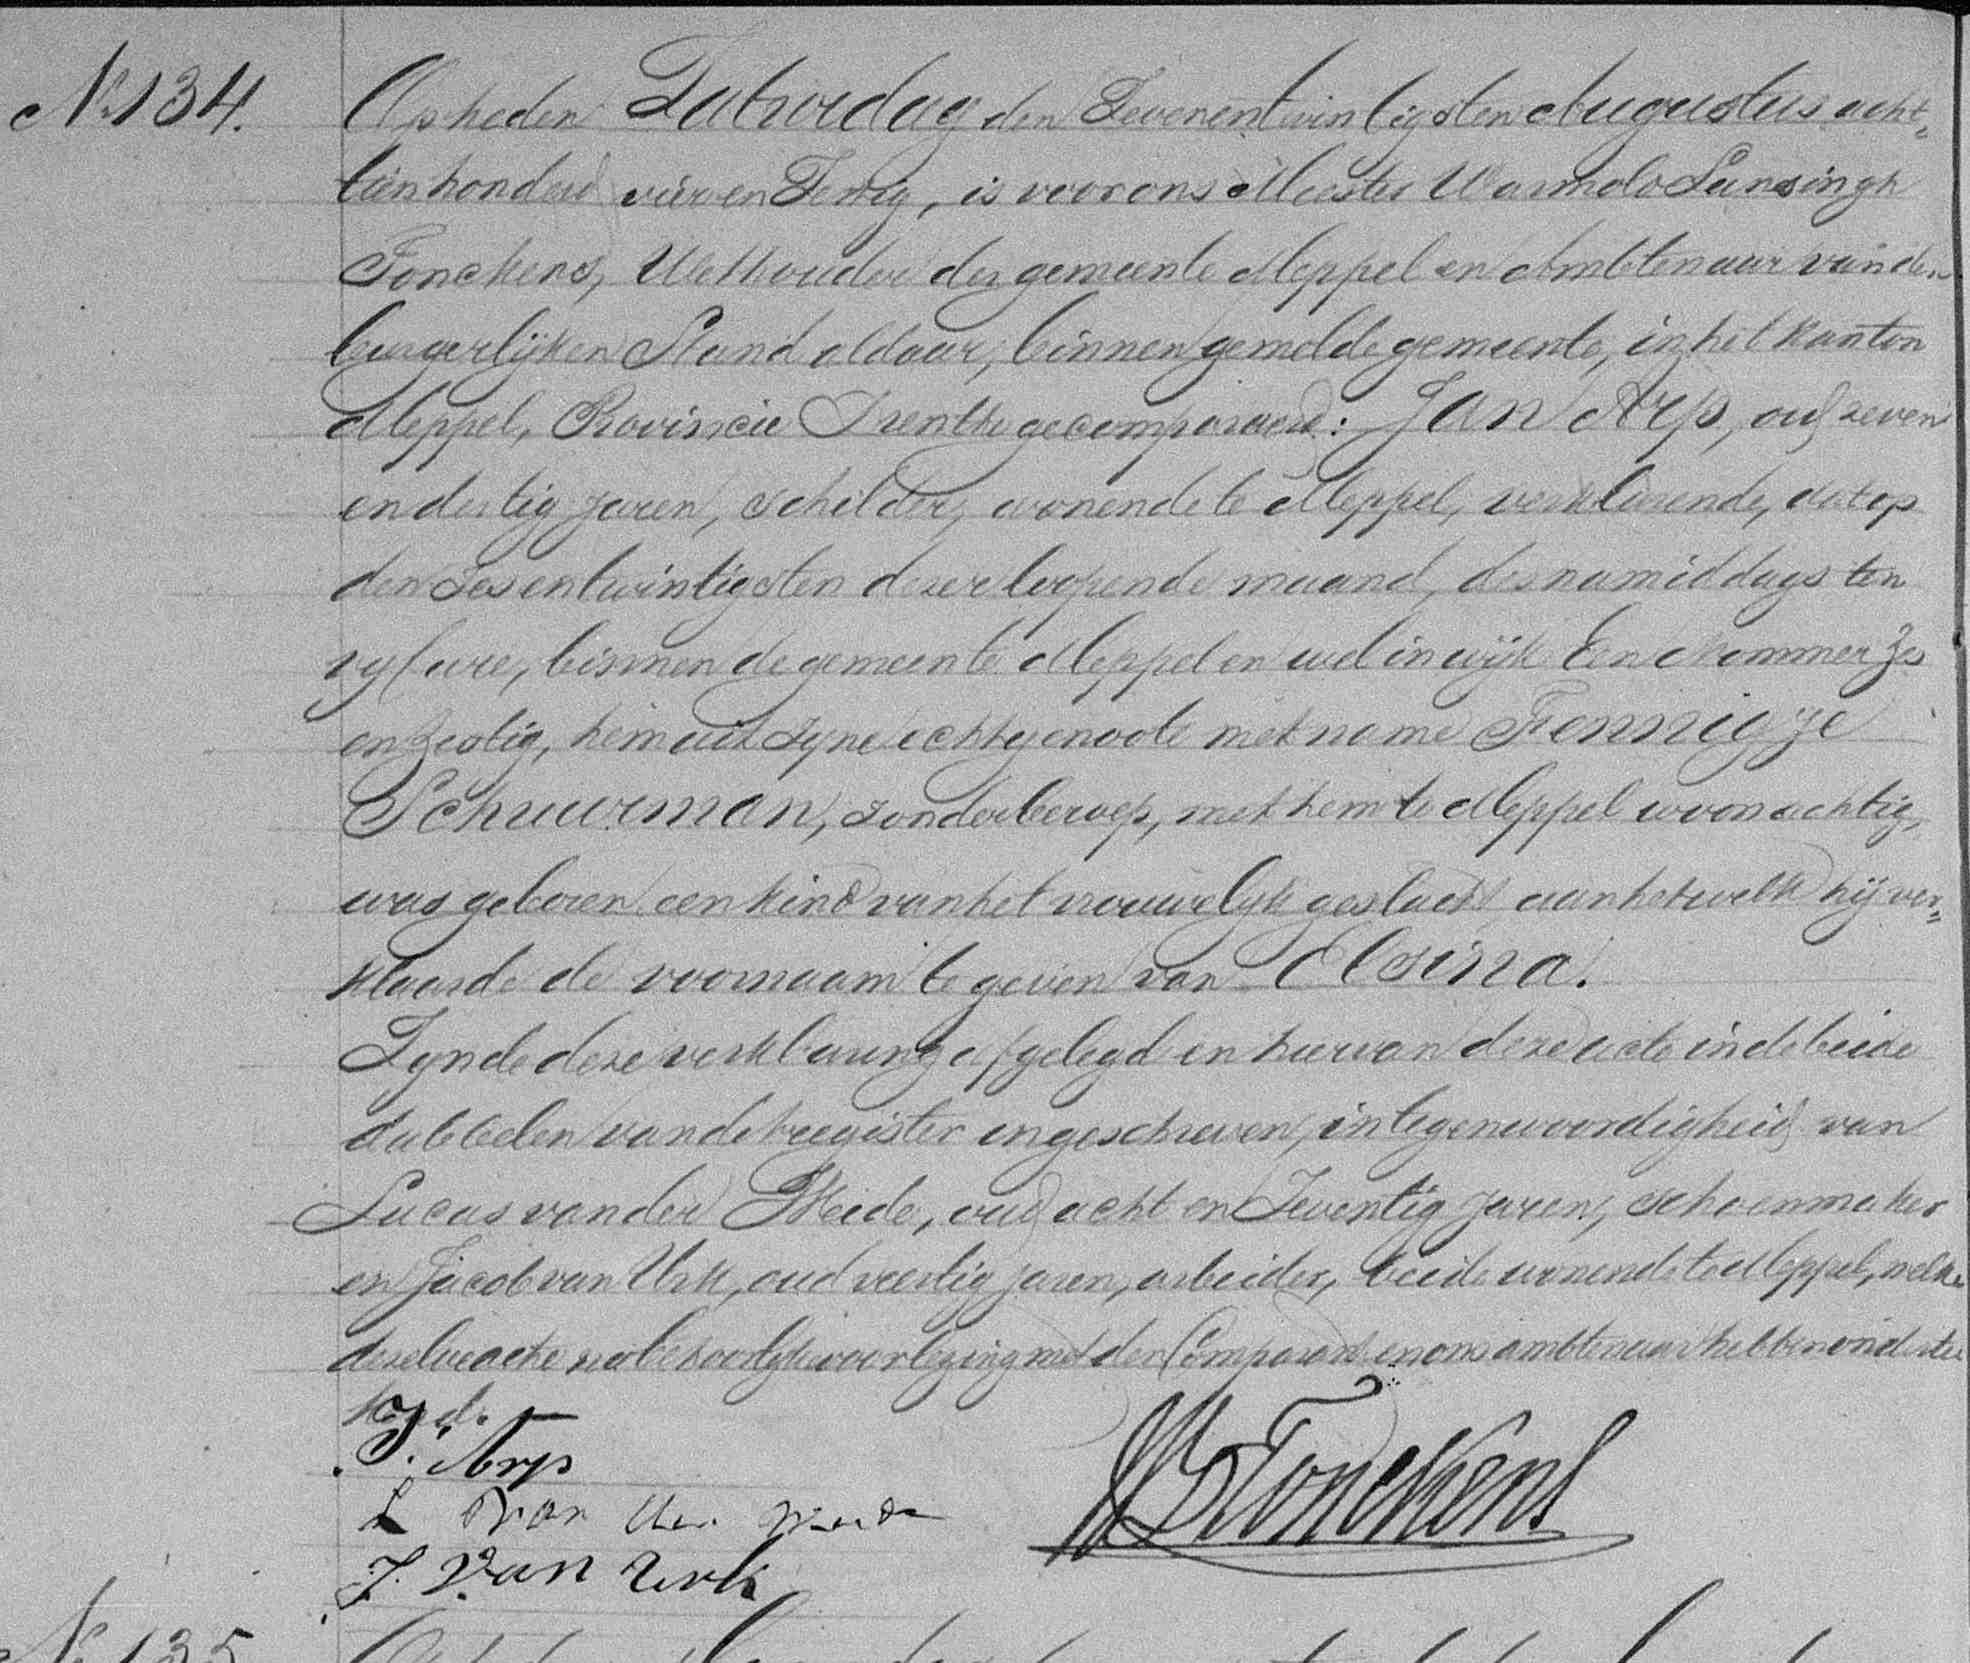 No 134. Op heden Saturdag den Zevenentwintigsten Augustus acht-
tienhonderd vierenZestig, is voor ons Meester Warmolo Lunsingh
Tonckens, Wethouder der gemeente Meppel en Ambtenaar van den
burgerlijken Stand aldaar, binnen gemelde gemeente, in het kanton
Meppel, Provincie Drenthe gecompareerd: Jan Arp, oud zeven
en dertig jaren, schilder, wonende te Meppel, verklarende, dat op
den Zesentwintigsten dezer loopende maand, des namiddags ten
vyf ure, binnen de gemeente Meppel en wel in wijk Een Nommer Zes
en Zestig, hem uit zyne echtgenoote met name Fennigje
Schuurman, zonder beroep, met hem te Meppel woonachtig,
was geboren een kind van het vrouwelyk geslacht aan hetwelk hij ver-
klaarde de voornaam te geven van Elsina.
Zynde deze verklaring afgelegd en hiervan deze acte in de beide
dubbelen van de register ingeschreven, in tegenwoordigheid van
Lucas van der Weide, oud acht en Zeventig jaren, schoenmaker
en Jacob van Urk, oud veertig jaren, arbeider, beide wonende te Meppel, welke
dezelve acte na behoorlijke voorlezing met den Comparant en ons ambtenaar hebben onderte
kend.
J. Arp
L van der Weide
J. van Urk
WLTonckens
No 135